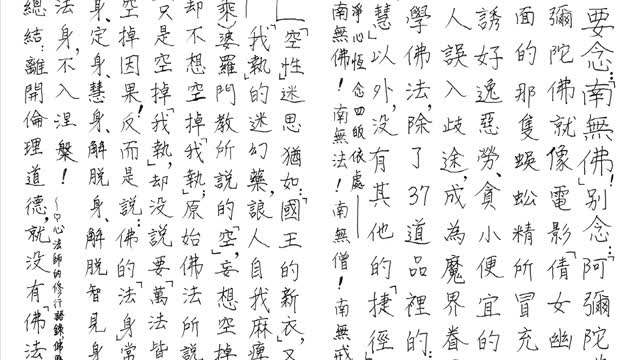 要念:「南無佛!」別念:「阿彌陀
彌陀佛就像電影「倩女幽
面的那隻蜈蚣精所冒充
誘好逸惡勞、貪小便宜的
人誤入歧途,成為魔界眷
學佛法,除了37道品裡的:
慧」以外,沒有其他的「捷徑
淨心恆念四皈依處——
南無佛!南無法!南無僧!南無戒
「空性」迷思猶如:「國王的新衣」,又
「我執」的迷幻藥,讓人自我麻痺
乘「婆羅門教所說的「空」,妄想空掉
却不想空掉「我執」;原始佛法所說
只是空掉「我執」,却沒說要「萬法皆
空掉因果!反而是說:佛的「法身常
身、定身、慧身、解脫身、解脫智見身
法身,不入涅槃!
~只心法師的修行語錄佛
總結:離開倫理道德,就沒有「佛法